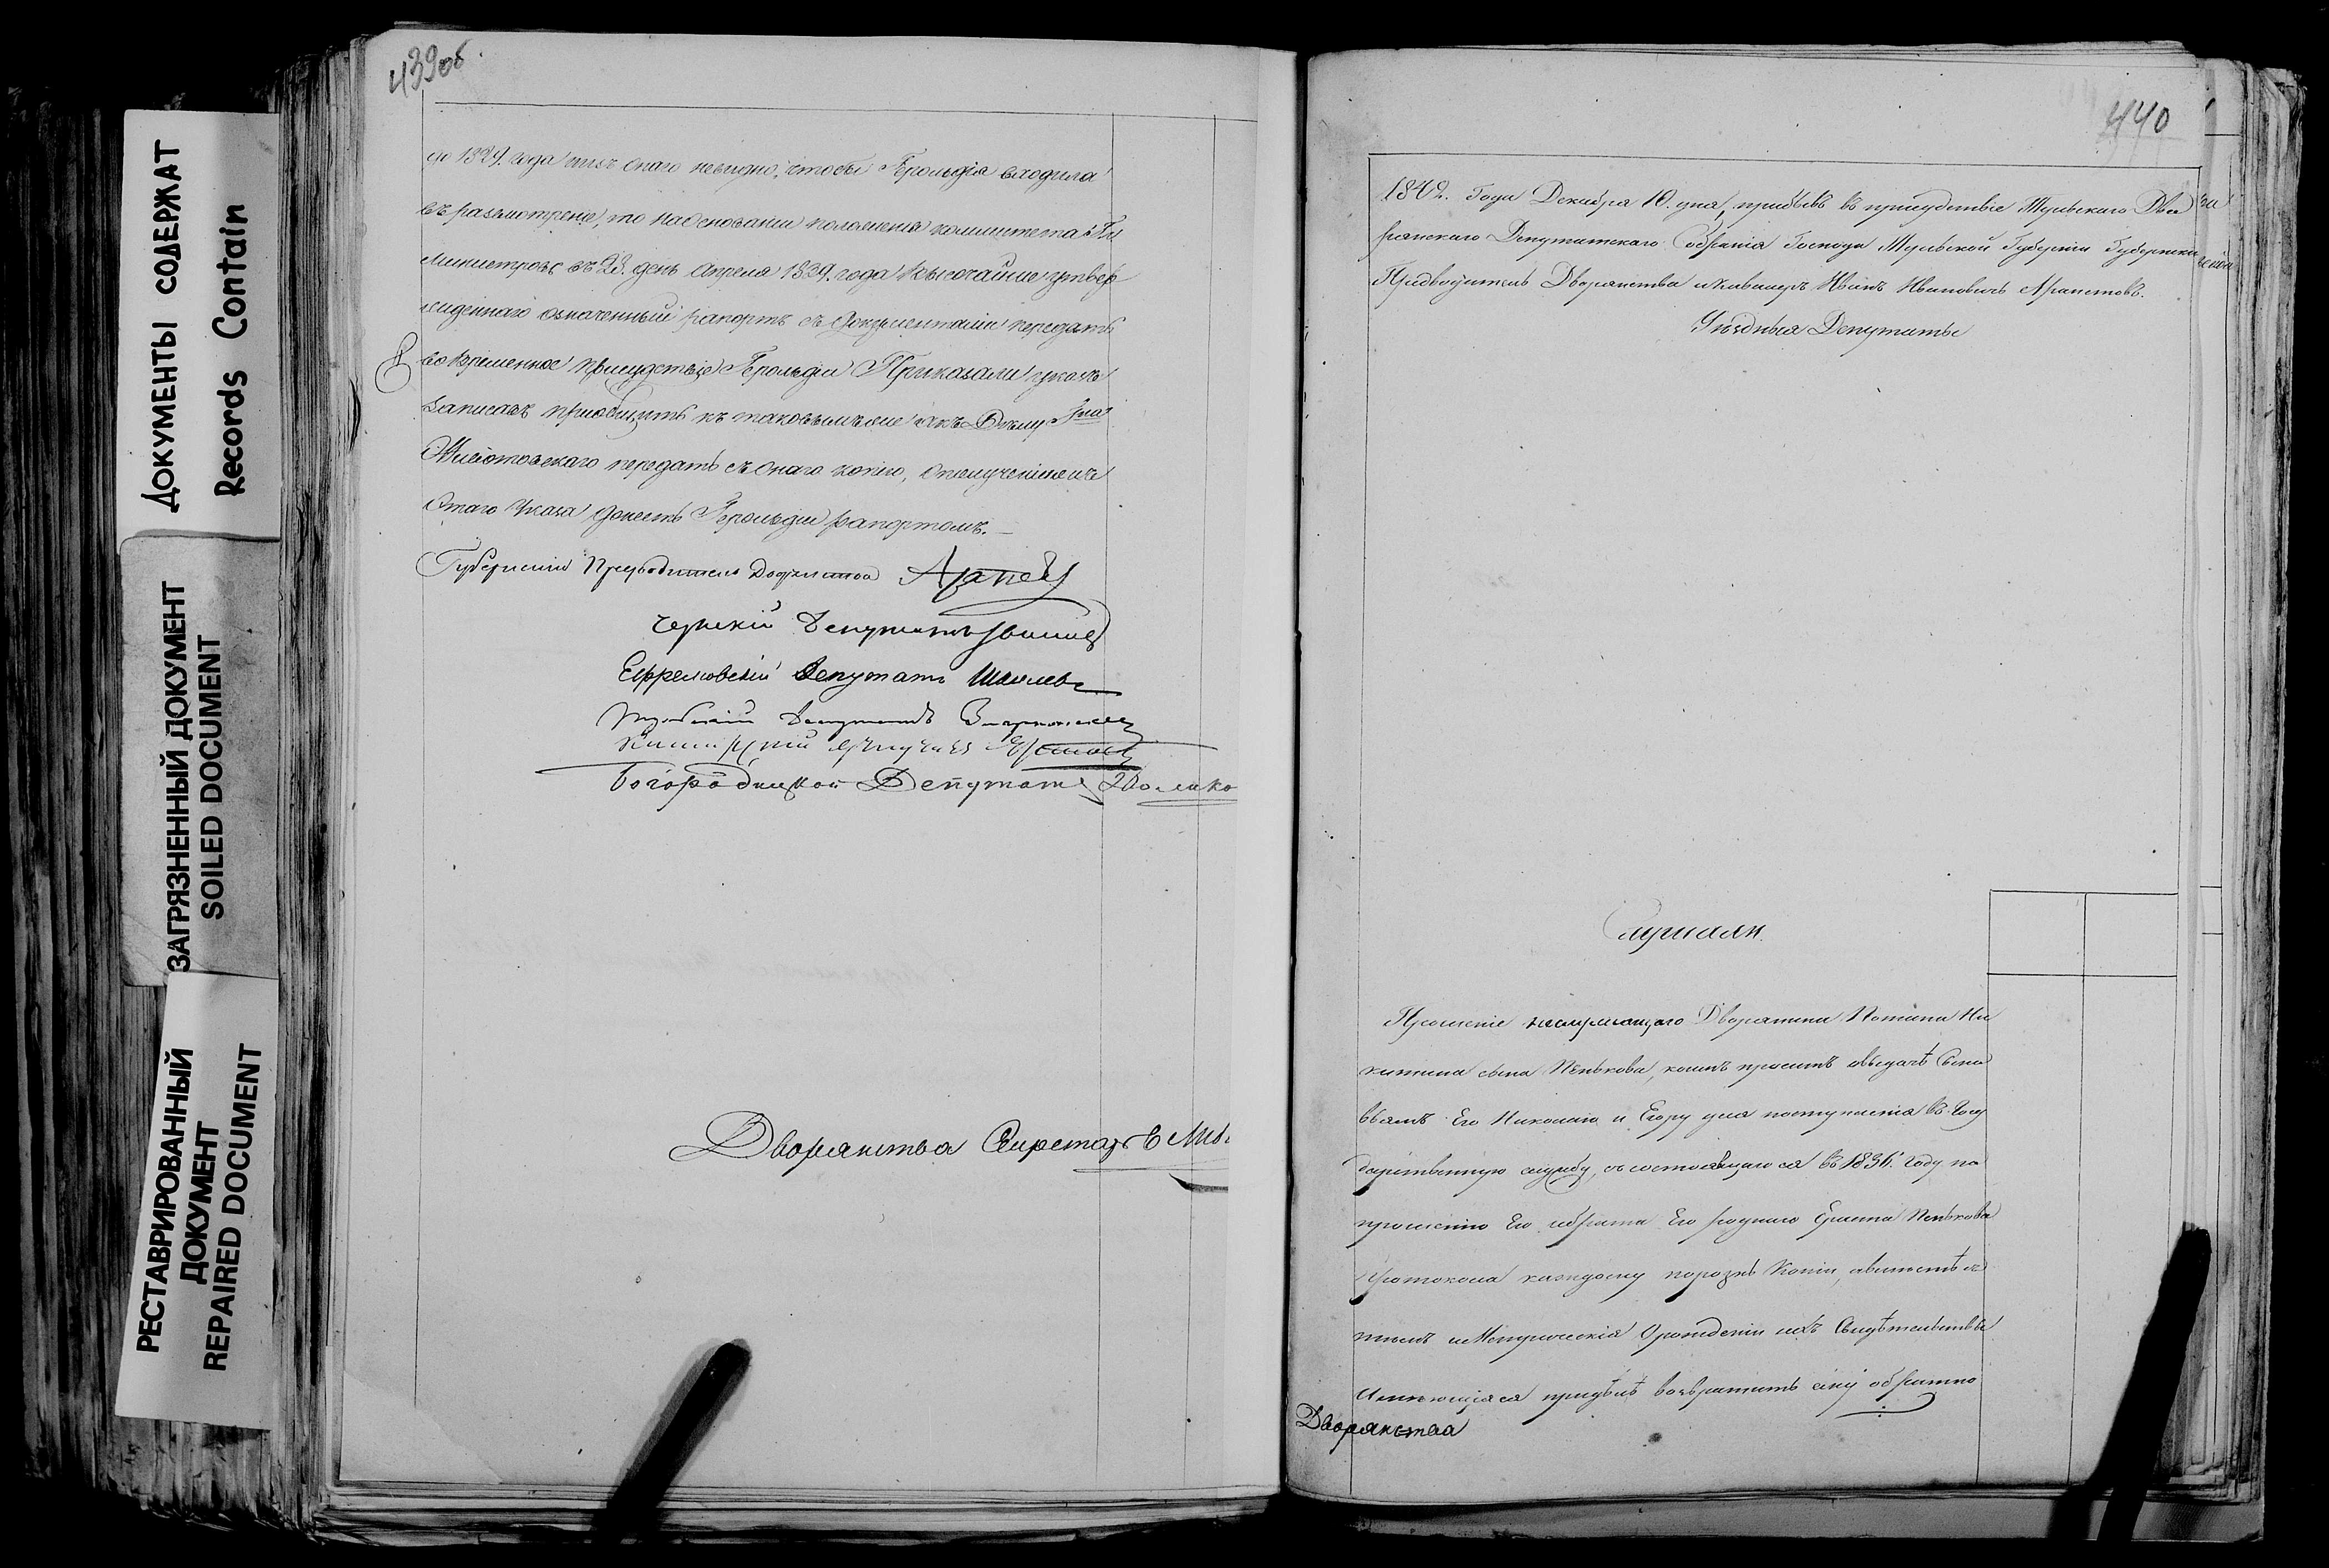 ДОКУМЕНТЫ СОДЕРЖАТ
Records Contain
ЗАГРЯЗНЕННЫЙ ДОКУМЕНТ
SOILED DOCUMENT
РЕСТАВРИРОВАННЫЙ
ДОКУМЕНТ
REPAIRED DOCUMENT
439об.
до 1829. года изъ онаго невидно, чтобы Герольдія входила
въ разсмотреніе, то наоснованіи положенія коммитета Гг.
Министровъ въ 28. день Апреля 1839. года Высочайше утвер
жденнаго означенный рапортъ съ Документами передать
во временное присудствіе Герольдіи Приказали указъ
записавъ приобщить къ таковымъ же акъ Делу
передать съ онаго копію, ополученіи же
Этаго Указа донесть Герольдіи рапортомъ.
Губернскій Предводитель Дворянства Арапетов
Чернскій Депутатъ
Ефремовскій Депутатъ Шеилевъ
Депутатъ
Богородицкой Депутатъ
Дворянства Секретарь
440
1842. Года Декабря 10. дня, прибывъ въ присудствіе Тульскаго Дво
рянскаго Депутатскаго Собранія Господинъ Тульской Губерніи Губернскій
Предводитель Дворянства и Кавалеръ Иванъ Ивановичъ Арапетовъ.
Уѣздныя Депутаты
Слушали.
Прошеніе неслужащаго Дворянина Потапа Ни
китина сына Пенькова, коимъ проситъ овыдачѣ Сыно
вьямъ Его Николаю и Егору для поступленія въ Госу
дарственную службу, съ состоявшагося въ 1836. году по
прошенію Его ибрата Его роднаго Пенькова
протокола каждому порознь Копіи, авмѣстѣ съ
тѣмъ иМетрическія Орожденіи ихъ Свидѣтельствы
Имѣющіяся придѣлѣ возвратить ему обратно
Дворянства